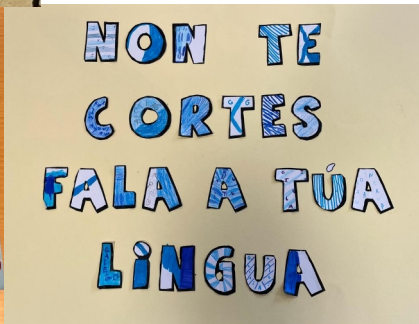 NON TE
CORTES
FALA A TÚA
LINGUA